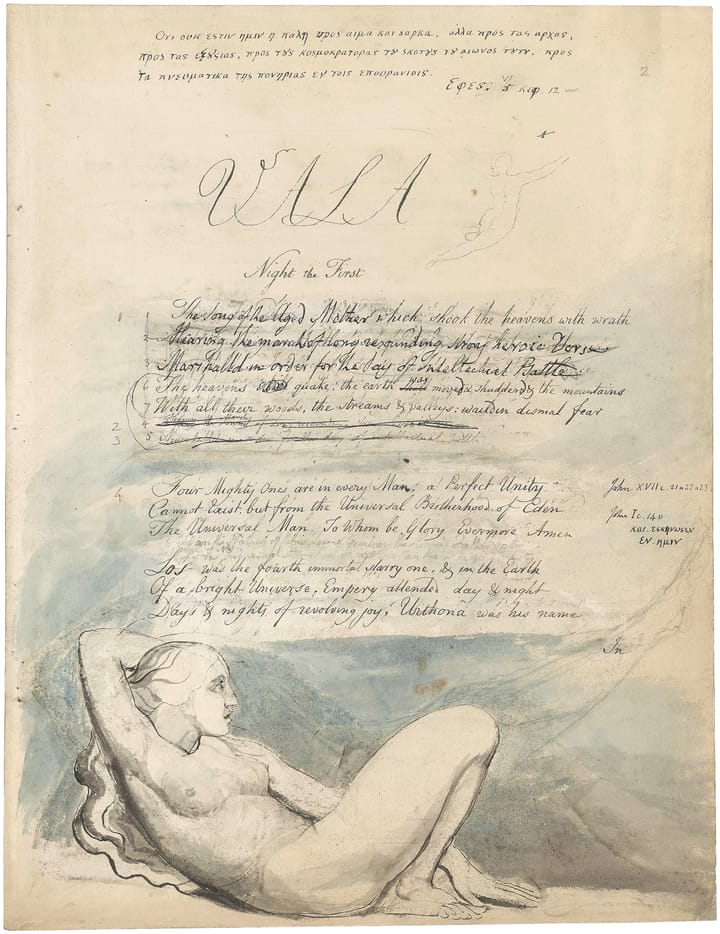 Οτι ουκ εστιν ημιν η παλη προς αιμα και σαρκα, αλλα προς τας αρχας,
προς τας εξουσιας, προς τους κοσμοκρατορας του σκοτους του αιωνος τουτου, προς
τα πνευματικα της πονηριας εν τοις επουρανιοις.
Εφες: 5 κεφ. 12 ver
2
VALA
Night the First
1 1 The Song of the Aged Mother which shook the heavens with wrath
2 Hearing the march of long resounding strong heroic Verse
3 Marshalld in order for the day of Intellectual Battle
6 The heavens quake: the earth moved & shudderd & the mountains
7 With all their woods, the streams & valleys: waild in dismal fear
2 4
3 5
4 Four Mighty Ones are in every Man; a Perfect Unity John XVII c. 21 & 22 & 23 v
Cannot Exist. but from the Universal Brotherhood of Eden John I c. 14 v
The Universal Man. To Whom be Glory Evermore Amen και εσκηνωσεν
εν ημιν
Los was the fourth immortal starry one, & in the Earth
Of a bright Universe, Empery attended day & night
Days & nights of revolving joy, Urthona was his name
In